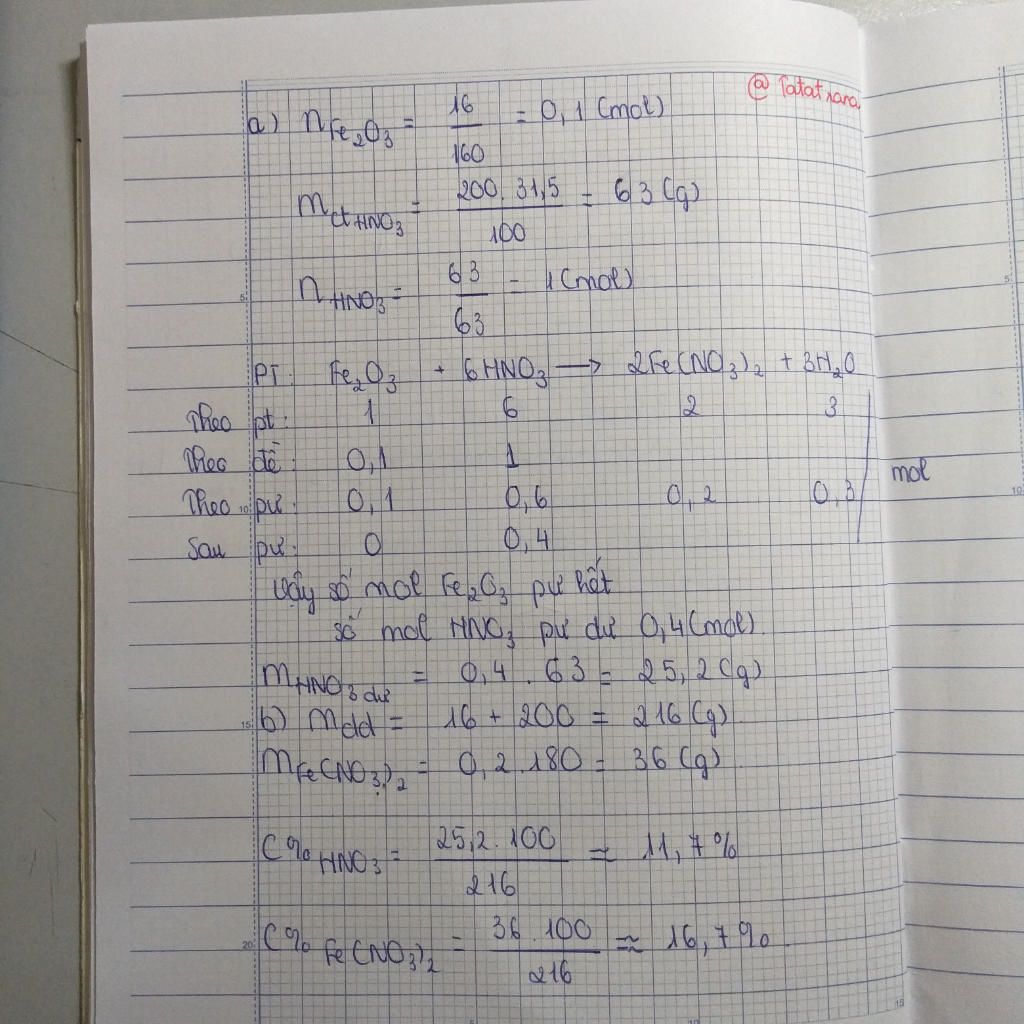 @ Tatatnana
a) n Fe2O3 = 16/160 = 0,1 (mol)
m ct HNO3 = 200.31,5/100 = 63 (g)
n HNO3 = 63/63 = 1 (mol)
PT: Fe2O3 + 6HNO3 → 2Fe(NO3)2 + 3H2O
Theo pt: 1 6 2 3
Theo đề: 0,1 1
Theo pư: 0,1 0,6 0,2 0,3 mol
Sau pư: 0 0,4
Vậy số mol Fe2O3 pư hết
số mol HNO3 pư dư 0,4 (mol)
m HNO3 dư = 0,4 . 63 = 25,2 (g)
b) m dd = 16 + 200 = 216 (g)
m Fe(NO3)2 = 0,2 . 180 = 36 (g)
C% HNO3 = 25,2 . 100/216 ≈ 11,7%
C% Fe(NO3)2 = 36 . 100/216 ≈ 16,7%